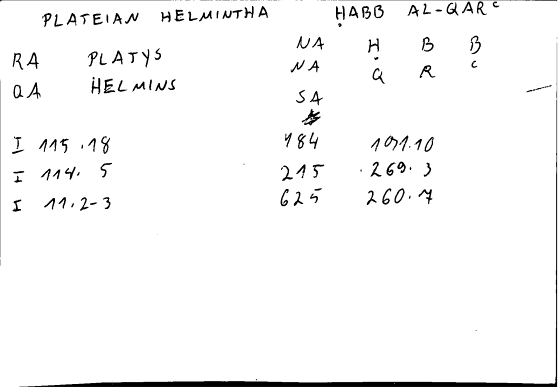 PLATEIAN HELMINTHA ḤABB AL-QARᶜ
RA PLATYS NA Ḥ B B
QA HELMINS NA Q R ᶜ
SA
I 115.18 484 191.10
I 114.5 215 269.3
I 11.2-3 625 260.7